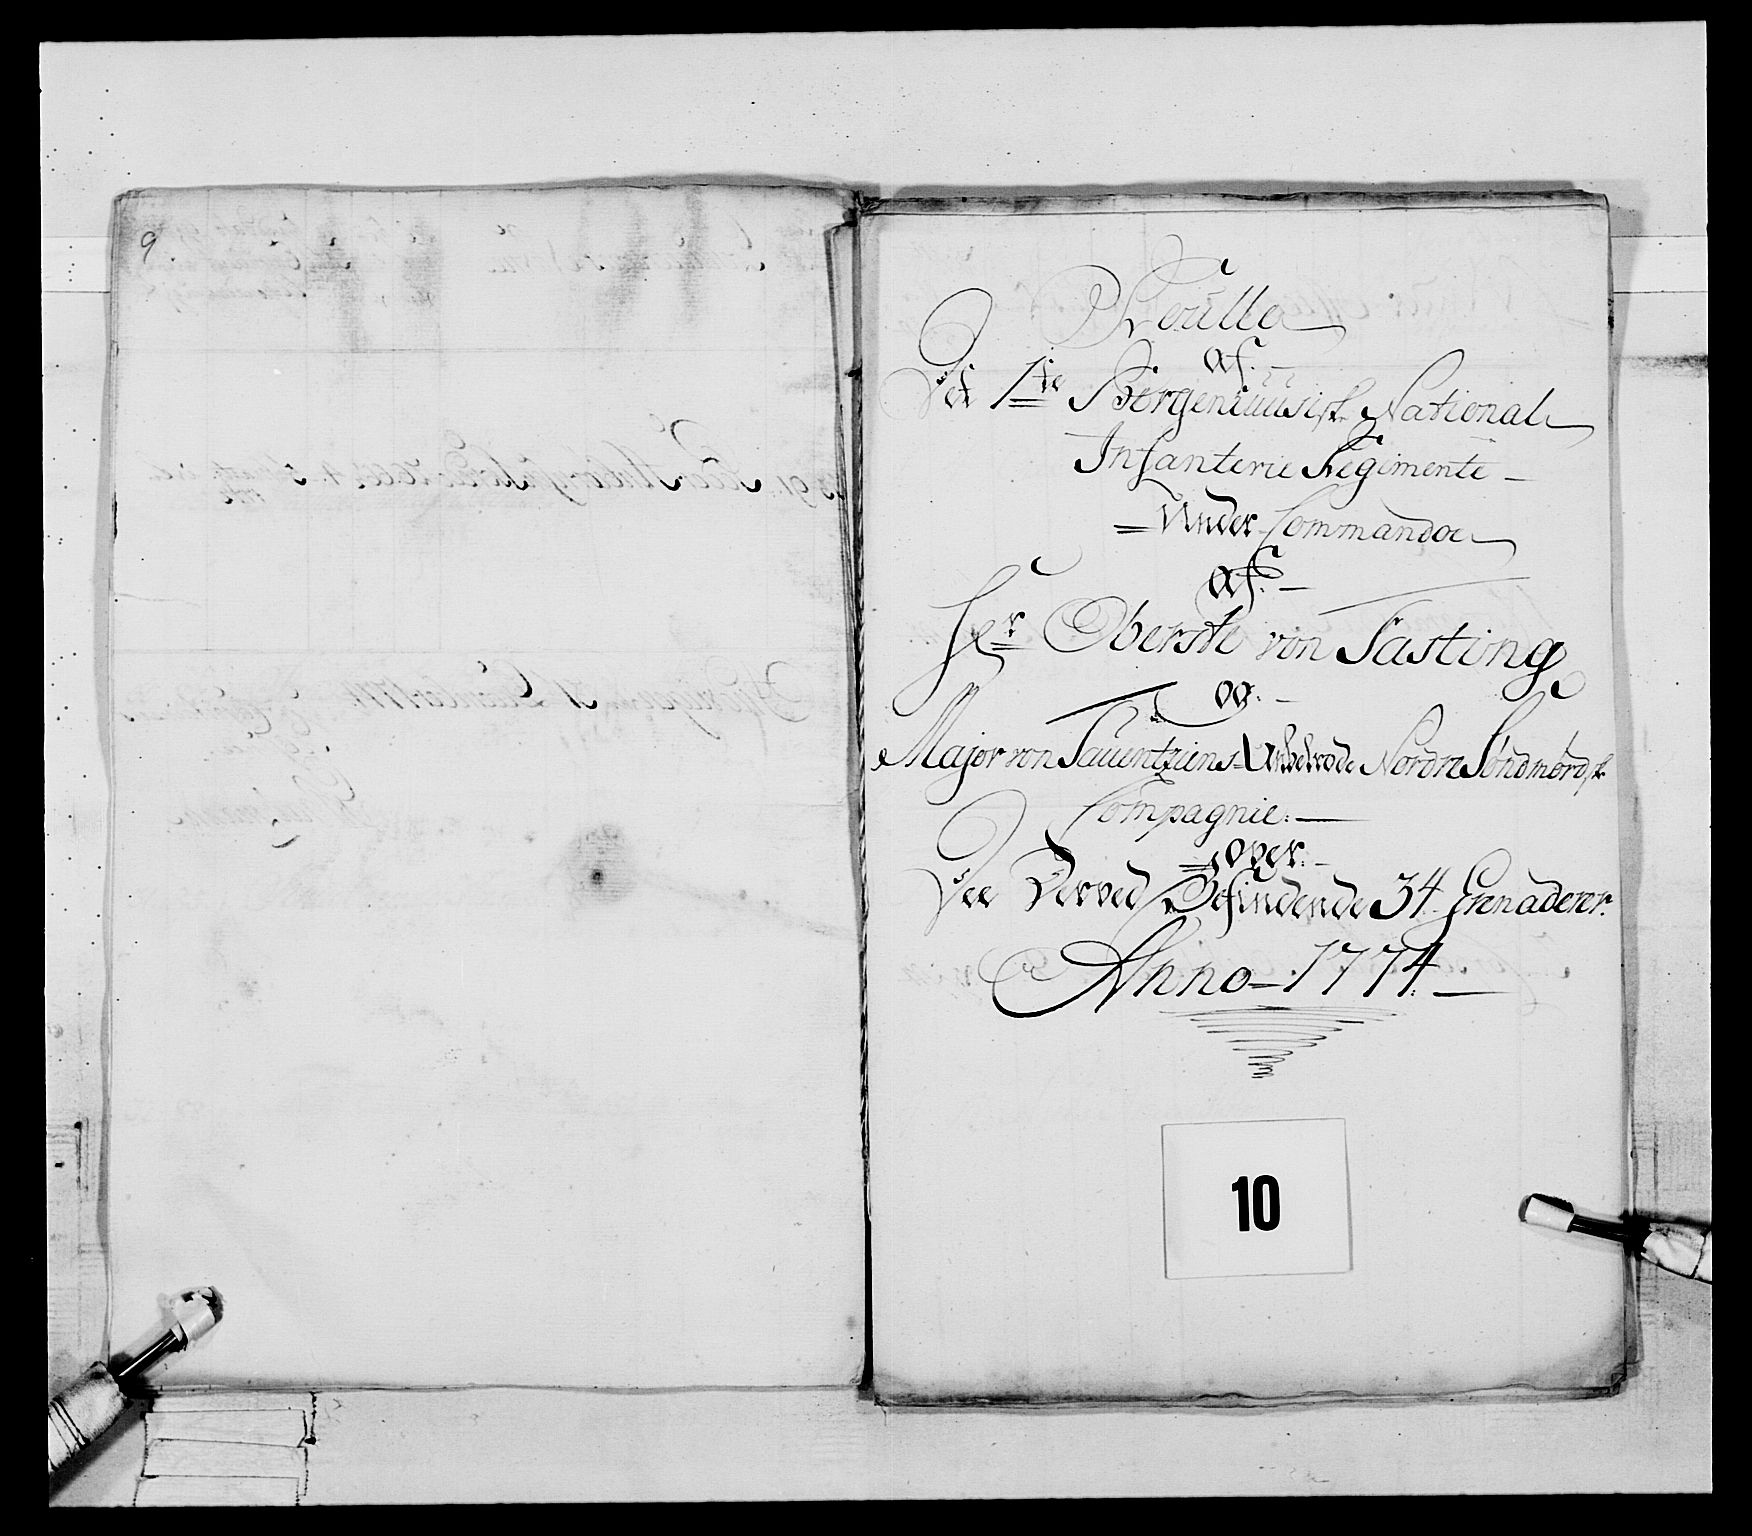 9
Roulle
af.
Det 1te Bergenhuusisk National
Infanterie Regimente
Under Commandoe
af.
Hr Oberste von Sasting
og.
Major von Tauentziens Nordre Söndmördsk
Compagnie.
over.
Dee Derved Befindende 34 Grenaderer.
Anno 1774.
10